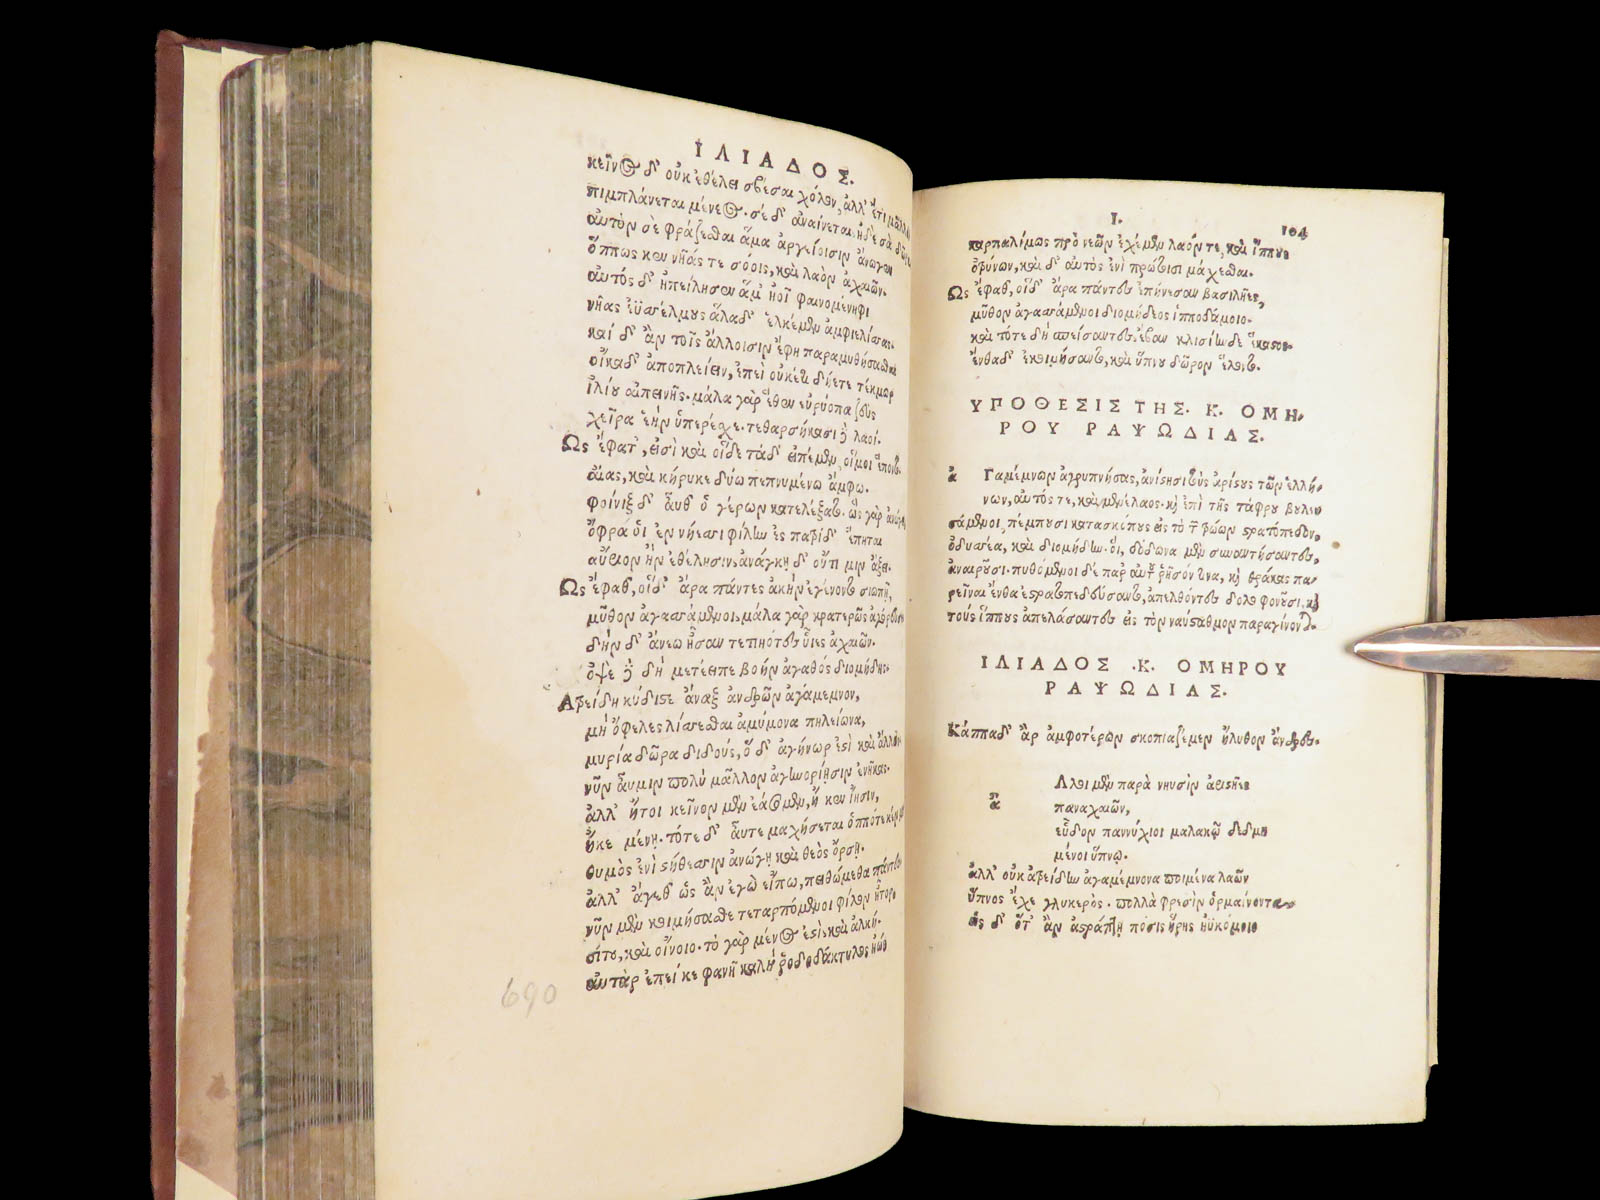 ἸΛΙΑΔΟΣ.
κεῖνος δ' οὐκ ἐθέλει σβέσαι χόλον, ἀλλ' ἔτι μᾶλλον
πιμπλάνεται μένεος· σὲ δ' ἀναίνεται, ἠδὲ σὰ δῶρα
αὐτὸν σὲ φράζεσθαι ἅμα ἀργείοισιν ἄνωγεν
ὅππως κεν νῆάς τε σόοις, καὶ λαὸν ἀχαιῶν.
αὐτός δ' ἠπείλησεν ἅμ' ἠοῖ φαινομένηφι
νῆας ἐϋσσέλμους ἅλαδ' ἑλκέμεν ἀμφιελίσσας.
καί δ' ἂν τοῖς ἄλλοισιν ἔφη παραμυθήσασθαι
οἴκαδ' ἀποπλείειν, ἐπεὶ οὐκέτι δήετε τέκμωρ
ἰλίου αἰπεινῆς· μάλα γάρ ἑθεν εὐρύοπα ζεὺς
χεῖρα ἑὴν ὑπερέσχε· τεθαρσήκασι δὲ λαοί.
Ως ἔφατ', εἰσὶ καὶ οἵδε τάδ' εἰπέμεν, οἵ μοι ἕποντο.
αἴας, καὶ κήρυκε δύω πεπνυμένω ἄμφω.
φοίνιξ δ' αὖθ' ὁ γέρων κατελέξατο· ὣς γὰρ ἀνώγει
ὄφρά οἱ ἐν νήεσσι φίλην ἐς πατρίδ' ἕπηται
αὔριον ἢν ἐθέλησιν, ἀνάγκῃ δ' οὔτι μιν ἄξει.
Ως ἔφαθ', οἵδ' ἄρα πάντες ἀκὴν ἐγένοντο σιωπῇ,
μῦθον ἀγασσάμενοι, μάλα γὰρ κρατερῶς ἀγόρευσεν
δὴν δ' ἄνεω ἦσαν τετιηότες υἷες ἀχαιῶν.
ὀψὲ δὲ δὴ μετέειπε βοὴν ἀγαθός διομήδης.
Ατρείδη κύδιστε ἄναξ ἀνδρῶν ἀγάμεμνον,
μὴ ὄφελες λίσσεσθαι ἀμύμονα πηλείωνα,
μυρία δῶρα διδούς, ὁ δ' ἀγήνωρ ἐστὶ καὶ ἄλλως
νῦν αὖ μιν πολὺ μᾶλλον ἀγηνορίῃσιν ἐνῆκας.
ἀλλ' ἤτοι κεῖνον μὲν ἐάσομεν, ἤ κεν ἴῃσιν,
ἤ κε μένῃ· τότε δ' αὖτε μαχήσεται ὁππότε κέν μιν
θυμὸς ἐνὶ στήθεσσιν ἀνώγῃ καὶ θεὸς ὄρσῃ.
ἀλλ' ἄγεθ' ὡς ἂν ἐγὼ εἴπω, πειθώμεθα πάντες
νῦν μὲν κοιμήσασθε τεταρπόμενοι φίλον ἦτορ
σίτου, καὶ οἴνοιο· τὸ γὰρ μένος ἐστὶ, καὶ ἀλκή.
αὐτὰρ ἐπεί κε φανῇ καλὴ ῥοδοδάκτυλος ἠώς
690
Ι.
104
καρπαλίμως πρὸ νεῶν ἐχέμεν λαόν τε, καὶ ἵππους
ὀτρύνων, καὶ δ' αὐτὸς ἐνὶ πρώτοισι μάχεσθαι.
Ως ἔφαθ', οἵδ' ἄρα πάντες ἐπήνεσαν βασιλῆες,
μῦθον ἀγασσάμενοι διομήδεος ἱπποδάμοιο.
καὶ τότε δὴ σπείσαντες ἔβαν κλισίην δε ἕκαστος.
ἔνθαδ' ἐκοιμήσαντο, καὶ ὕπνου δῶρον ἕλοντο.
ΥΠΟΘΕΣΙΣ ΤΗΣ. Κ. ΟΜΗ-
ΡΟΥ ΡΑΨΩΔΙΑΣ.
ἀ Γαμέμνων ἀγρυπνήσας, ἀνίστησι τοὺς ἀρίστους τῶν ἑλλή-
νων, αὐτός τε, καὶ μενέλαος. καὶ ἐπὶ τῆς τάφρου βουλευ
σάμενοι, πέμπουσι κατασκόπους εἰς τὸ τῶν τρώων στρατόπεδον,
ὀδυσσέα, καὶ διομήδην. οἱ, δόλωνα μὲν συναντήσαντες,
ἀναιροῦσι. πυθόμενοι δὲ παρ' αὐτοῦ ῥῆσόν τινα, καὶ θρᾷκας πα-
ρεῖναι ἔνθα ἐστρατοπέδευσαν, ἀπελθόντες δολοφονοῦσι, καὶ
τοὺς ἵππους ἀπελάσαντες εἰς τὸν ναύσταθμον παραγίνονται.
ΙΛΙΑΔΟΣ .Κ. ΟΜΗΡΟΥ
ΡΑΨΩΔΙΑΣ.
Κάππα δ' ἂρ ἀμφοτέρων σκοπιαζέμεν ἤλυθον ἄνδρες.
ἄ
Λλοι μὲν παρὰ νηυσὶν ἀριστῆες
παναχαιῶν,
εὗδον παννύχιοι μαλακῷ δεδμη
μένοι ὕπνῳ.
ἀλλ' οὐκ ἀτρείδην ἀγαμέμνονα ποιμένα λαῶν
ὕπνος ἔχε γλυκερὸς. πολλὰ φρεσὶν ὁρμαίνοντα.
ὡς δ' ὅτ' ἂν ἀστράπτῃ πόσις ἥρης ἠϋκόμοιο